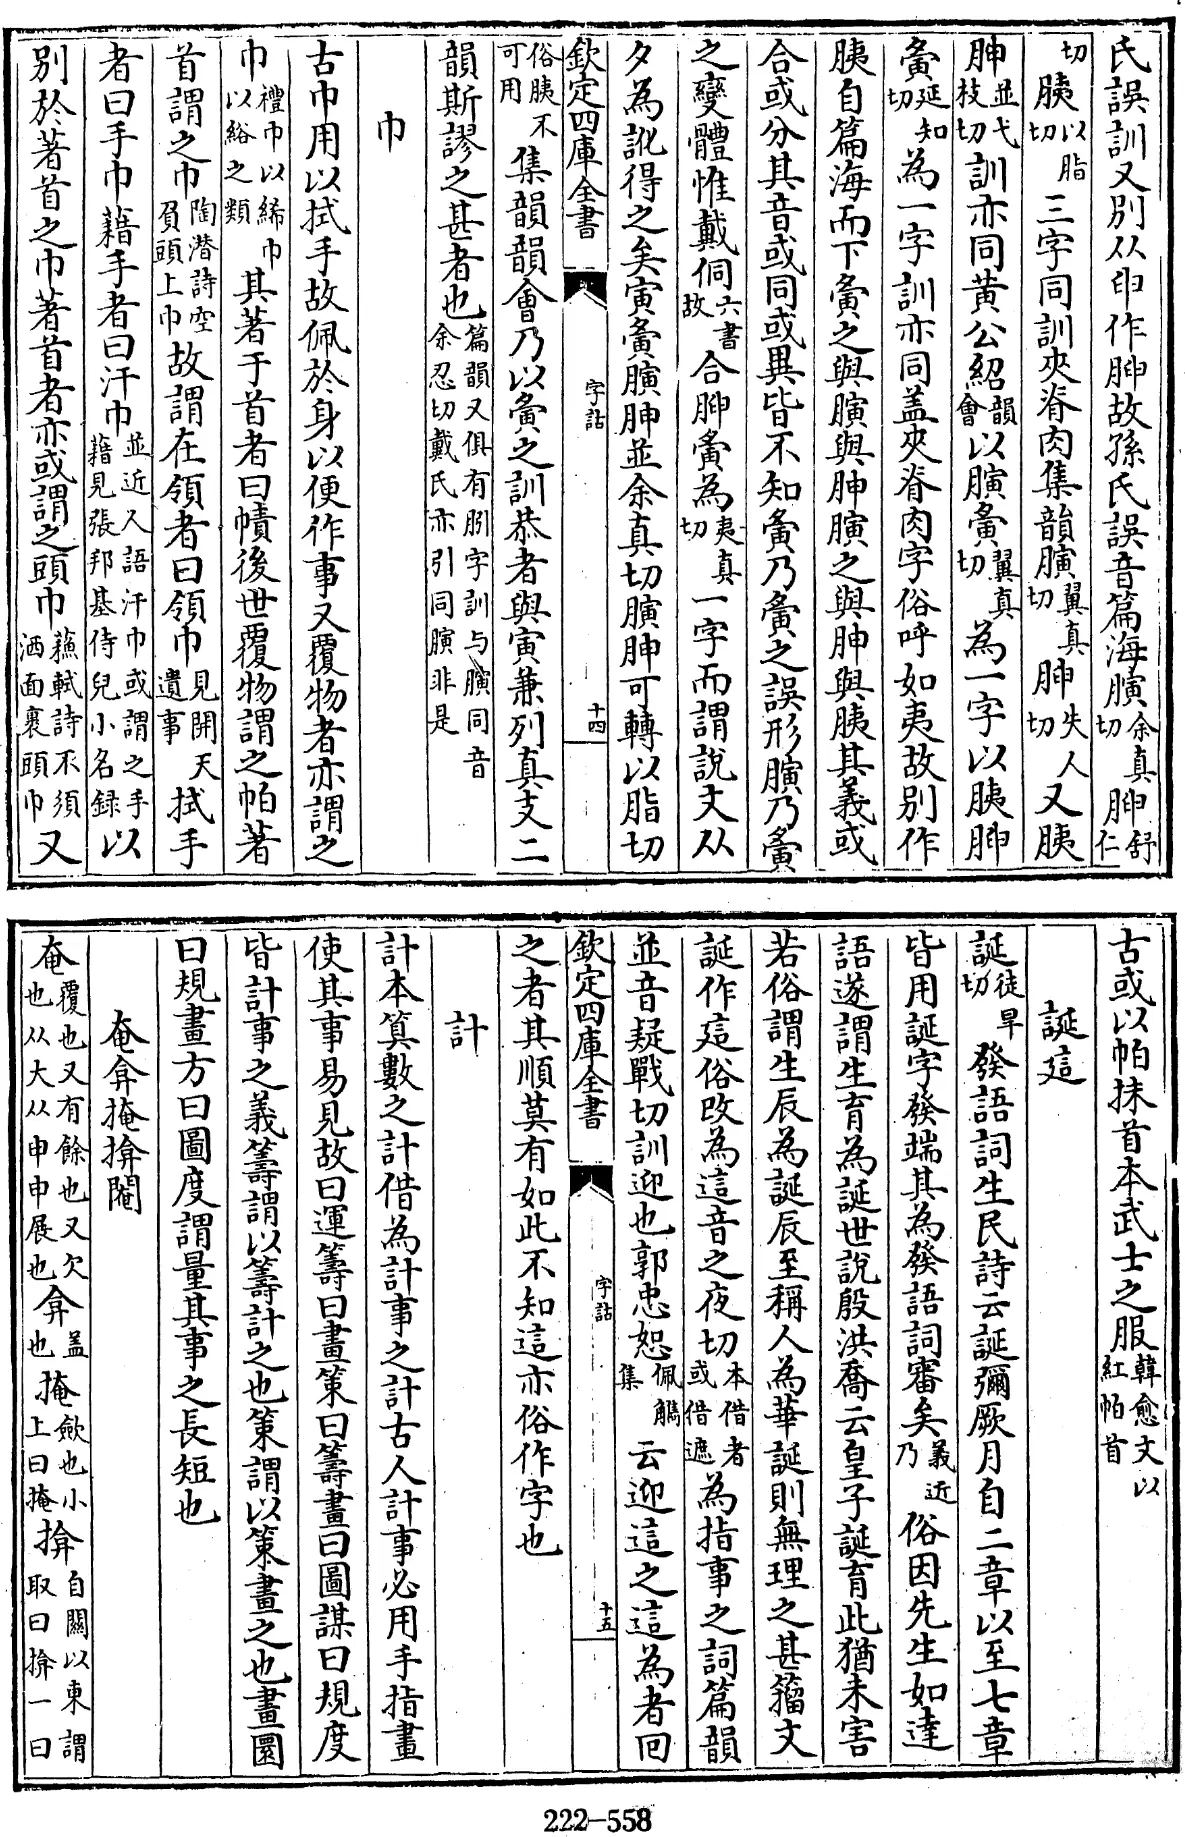 氏誤訓又別从𦥔作胂故孫氏誤音篇海䐠余真切胂舒仁
切胰以脂切三字同訓夾脊肉集韻䐠翼真切胂失人切又胰
胂並弋枝切訓亦同黃公紹韻會以䐠夤翼真切為一字以胰胂
夤延知切為一字訓亦同盖夾脊肉字俗呼如夷故別作
胰自篇海而下夤之與䐠與胂䐠之與胂與胰其義或
合或分其音或同或異皆不知夤乃夤之誤形䐠乃夤
之變體惟戴侗六書故合胂夤為夷真切一字而謂說文从
夕為訛得之矣寅夤䐠胂並余真切䐠胂可轉以脂切
欽定四庫全書 字詁 十四
俗胰不可用集韻韻會乃以夤之訓恭者與寅兼列真支二
韻斯謬之甚者也篇韻又俱有䏖字訓与䐠同音余忍切戴氏亦引同䐠非是
巾
古巾用以拭手故佩於身以便作事又覆物者亦謂之
巾禮巾以絺巾以綌之類其著于首者曰幘後世覆物謂之帕著
首謂之巾陶潛詩空負頭上巾故謂在領者曰領巾見開天遺事拭手
者曰手巾藉手者曰汗巾並近人語汗巾或謂之手藉見張邦基侍兒小名録以
別於著首之巾著首者亦或謂之頭巾蘇軾詩不須洒面裹頭巾又
古或以帕抹首本武士之服韓愈文以紅帕首
誕這
誕徒旱切發語詞生民詩云誕彌厥月自二章以至七章
皆用誕字發端其為發語詞審矣義近乃俗因先生如達
語遂謂生育為誕世說殷洪喬云皇子誕育此猶未害
若俗謂生辰為誕辰至稱人為華誕則無理之甚籀文
誕作這俗改為這音之夜切本借者或借遮為指事之詞篇韻
並音疑戰切訓迎也郭忠恕佩觿集云迎這之這為者回
欽定四庫全書 字詁 十五
之者其順莫有如此不知這亦俗作字也
計
計本算數之計借為計事之計古人計事必用手指畫
使其事易見故曰運籌曰畫策曰籌畫曰圖謀曰規度
皆計事之義籌謂以籌計之也策謂以策畫之也畫圜
曰規畫方曰圖度謂量其事之長短也
奄弇掩揜閹
奄覆也又有餘也又欠也从大从申申展也弇盖也掩斂也小上曰掩揜自關以東謂取曰揜一曰
222-558